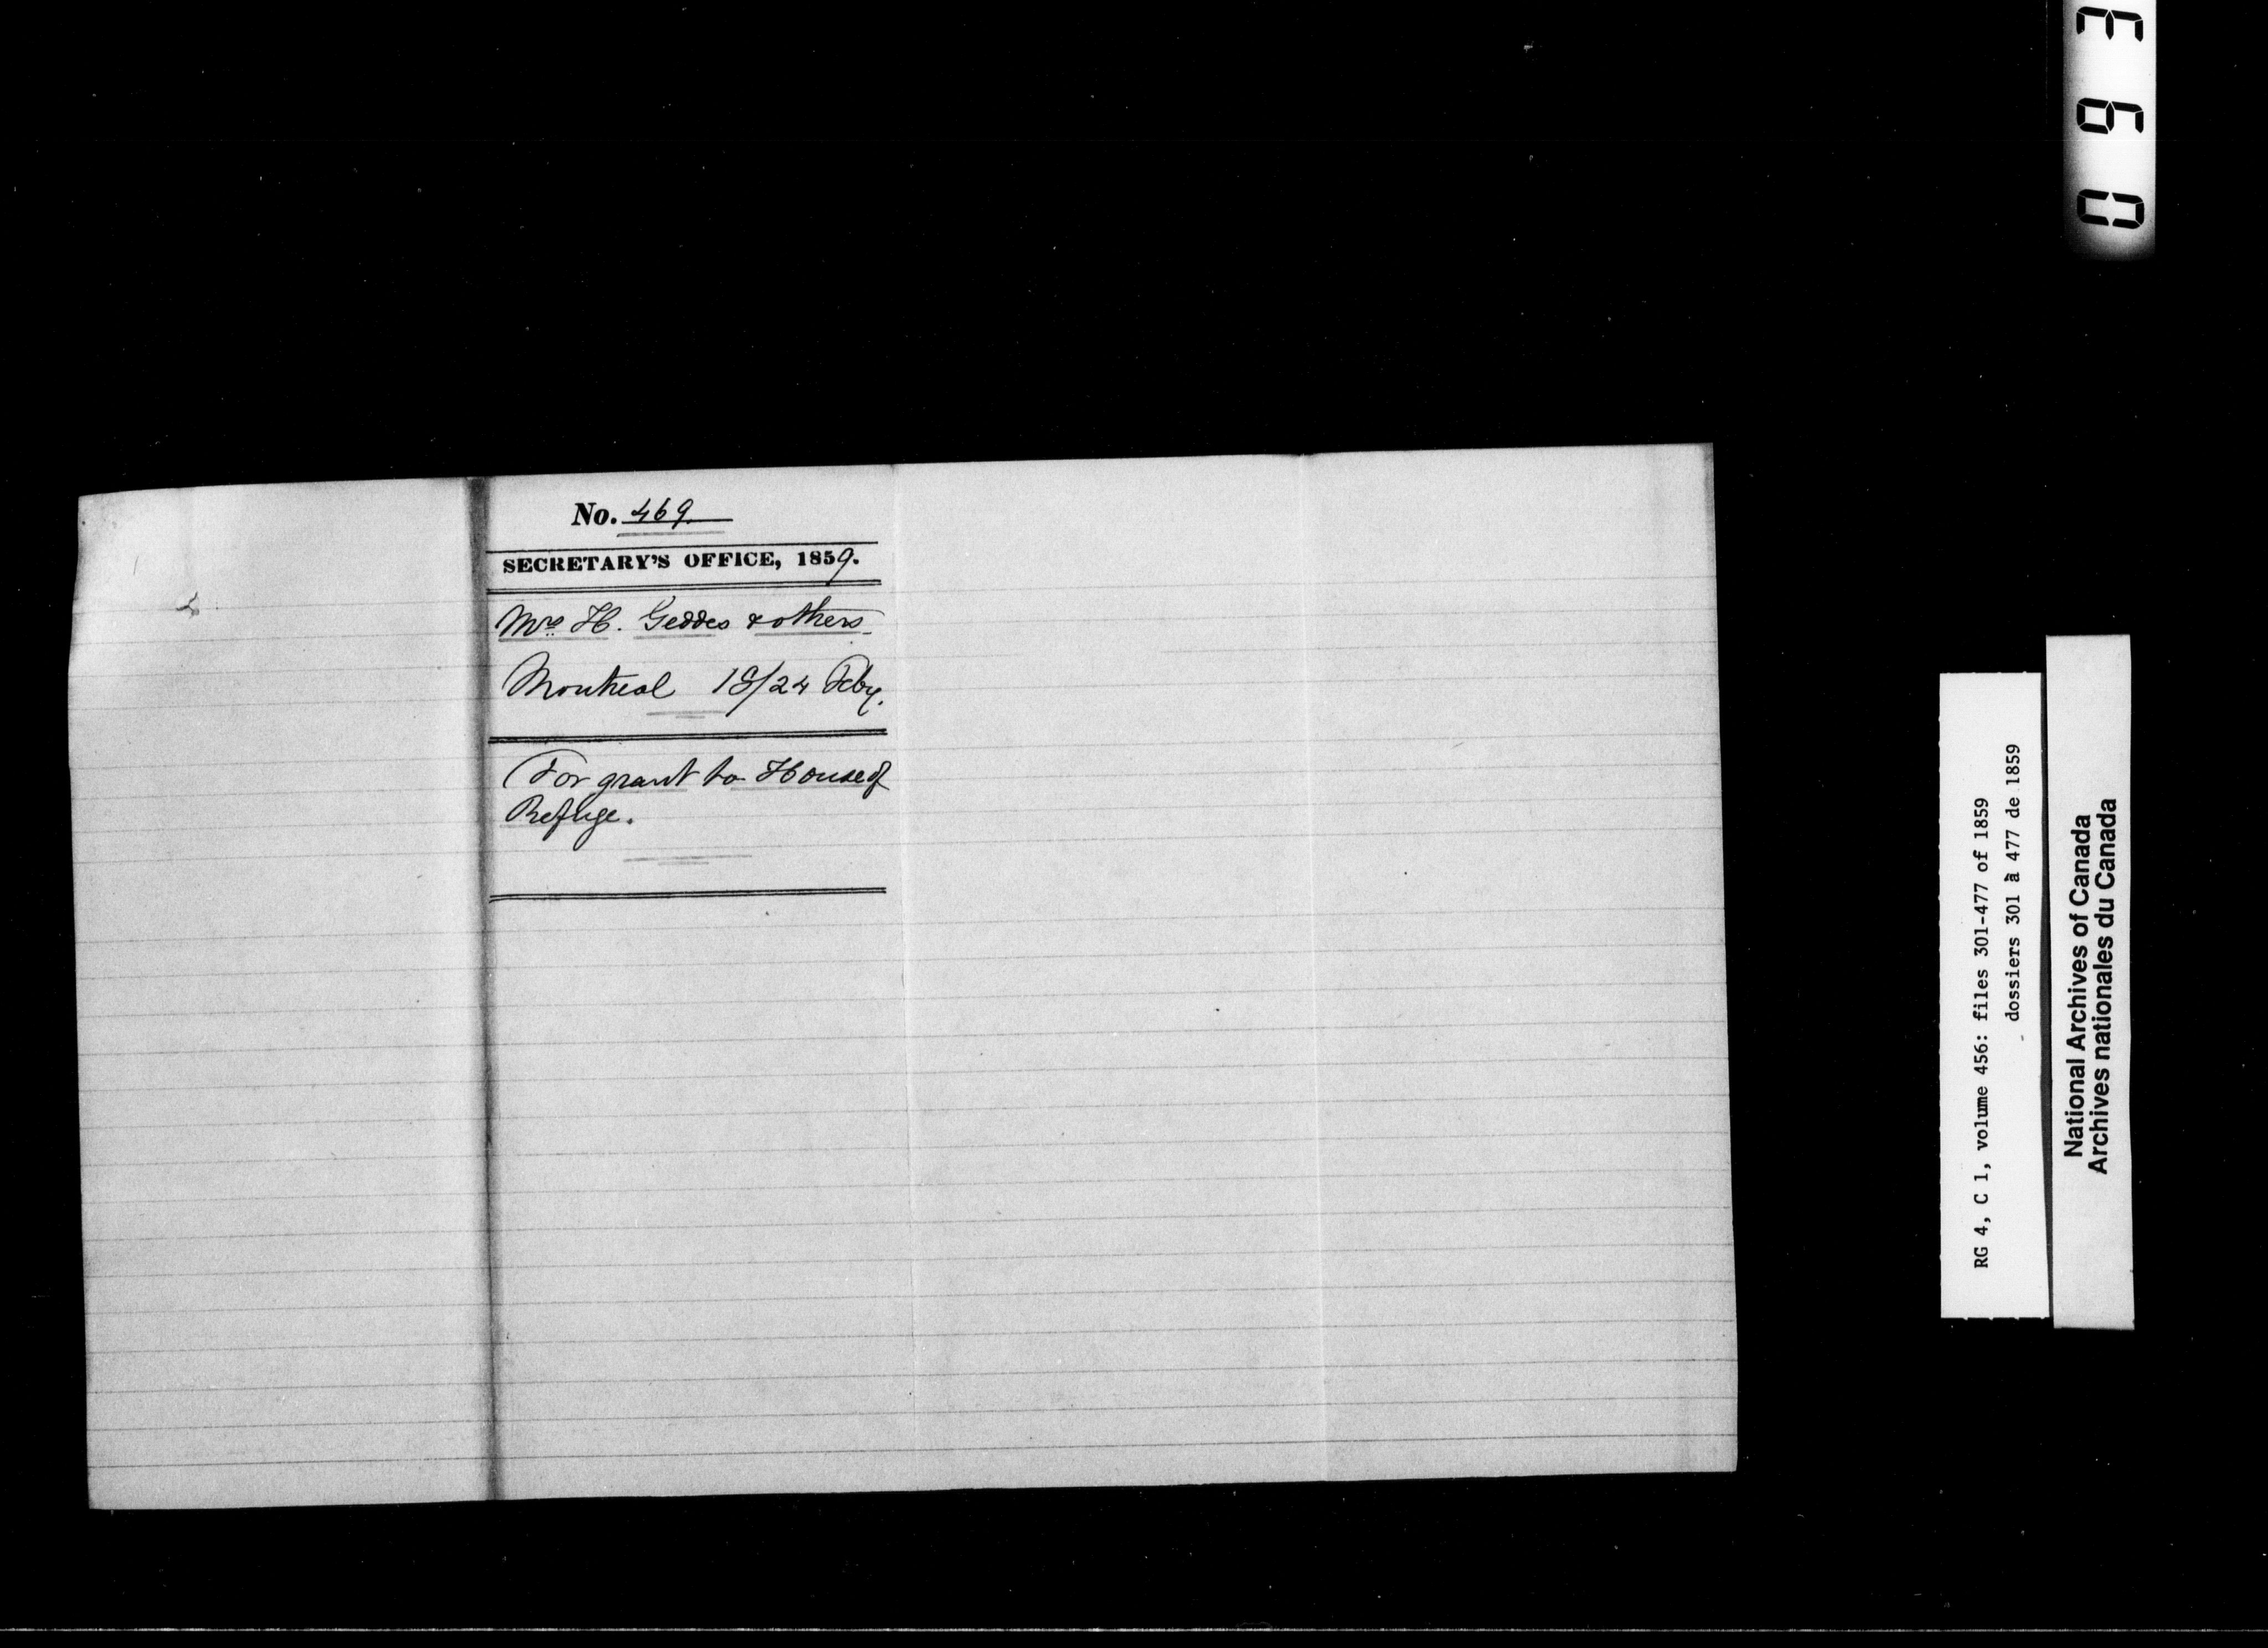 No. 469.
SECRETARY'S OFFICE, 1859.
Mrs H. Geddes & others.
Montreal 18/24 Feby.
For grant to House of
Refuge.
RG 4, C 1, volume 456: files 301-477 of 1859
dossiers 301 à 477 de 1859
National Archives of Canada
Archives nationales du Canada
093